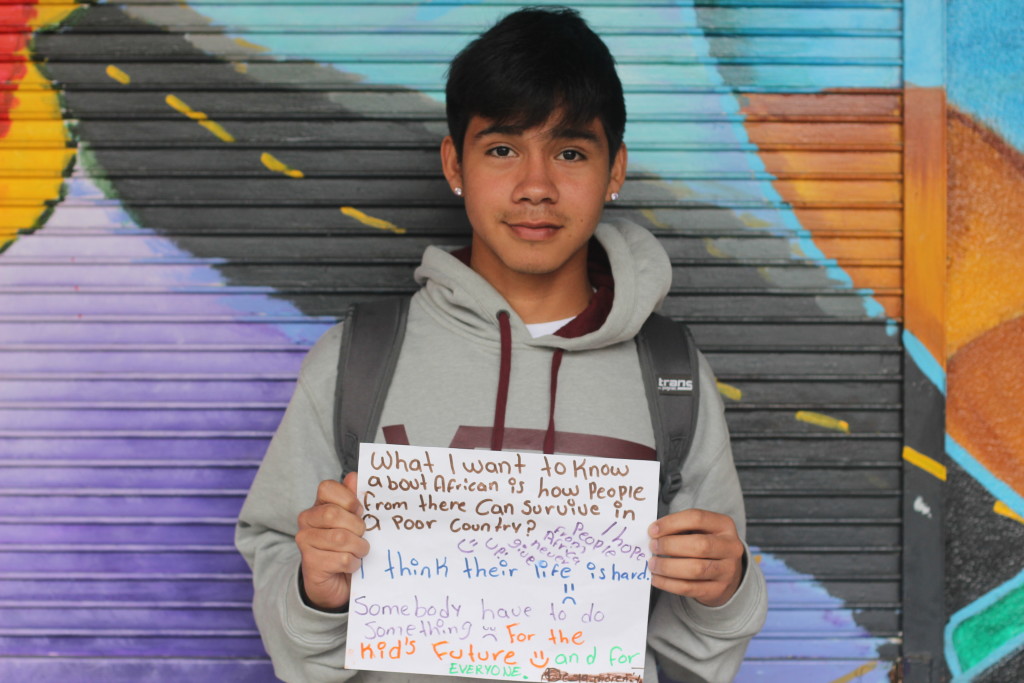 trans
What I want to Know
about African is how People
from there Can Survive in
a Poor Country?
I hope
People
From
Africa
never
give
up.
I think their life is hard.
Somebody have to do
something For the
Kid's Future and for
EVERYONE.